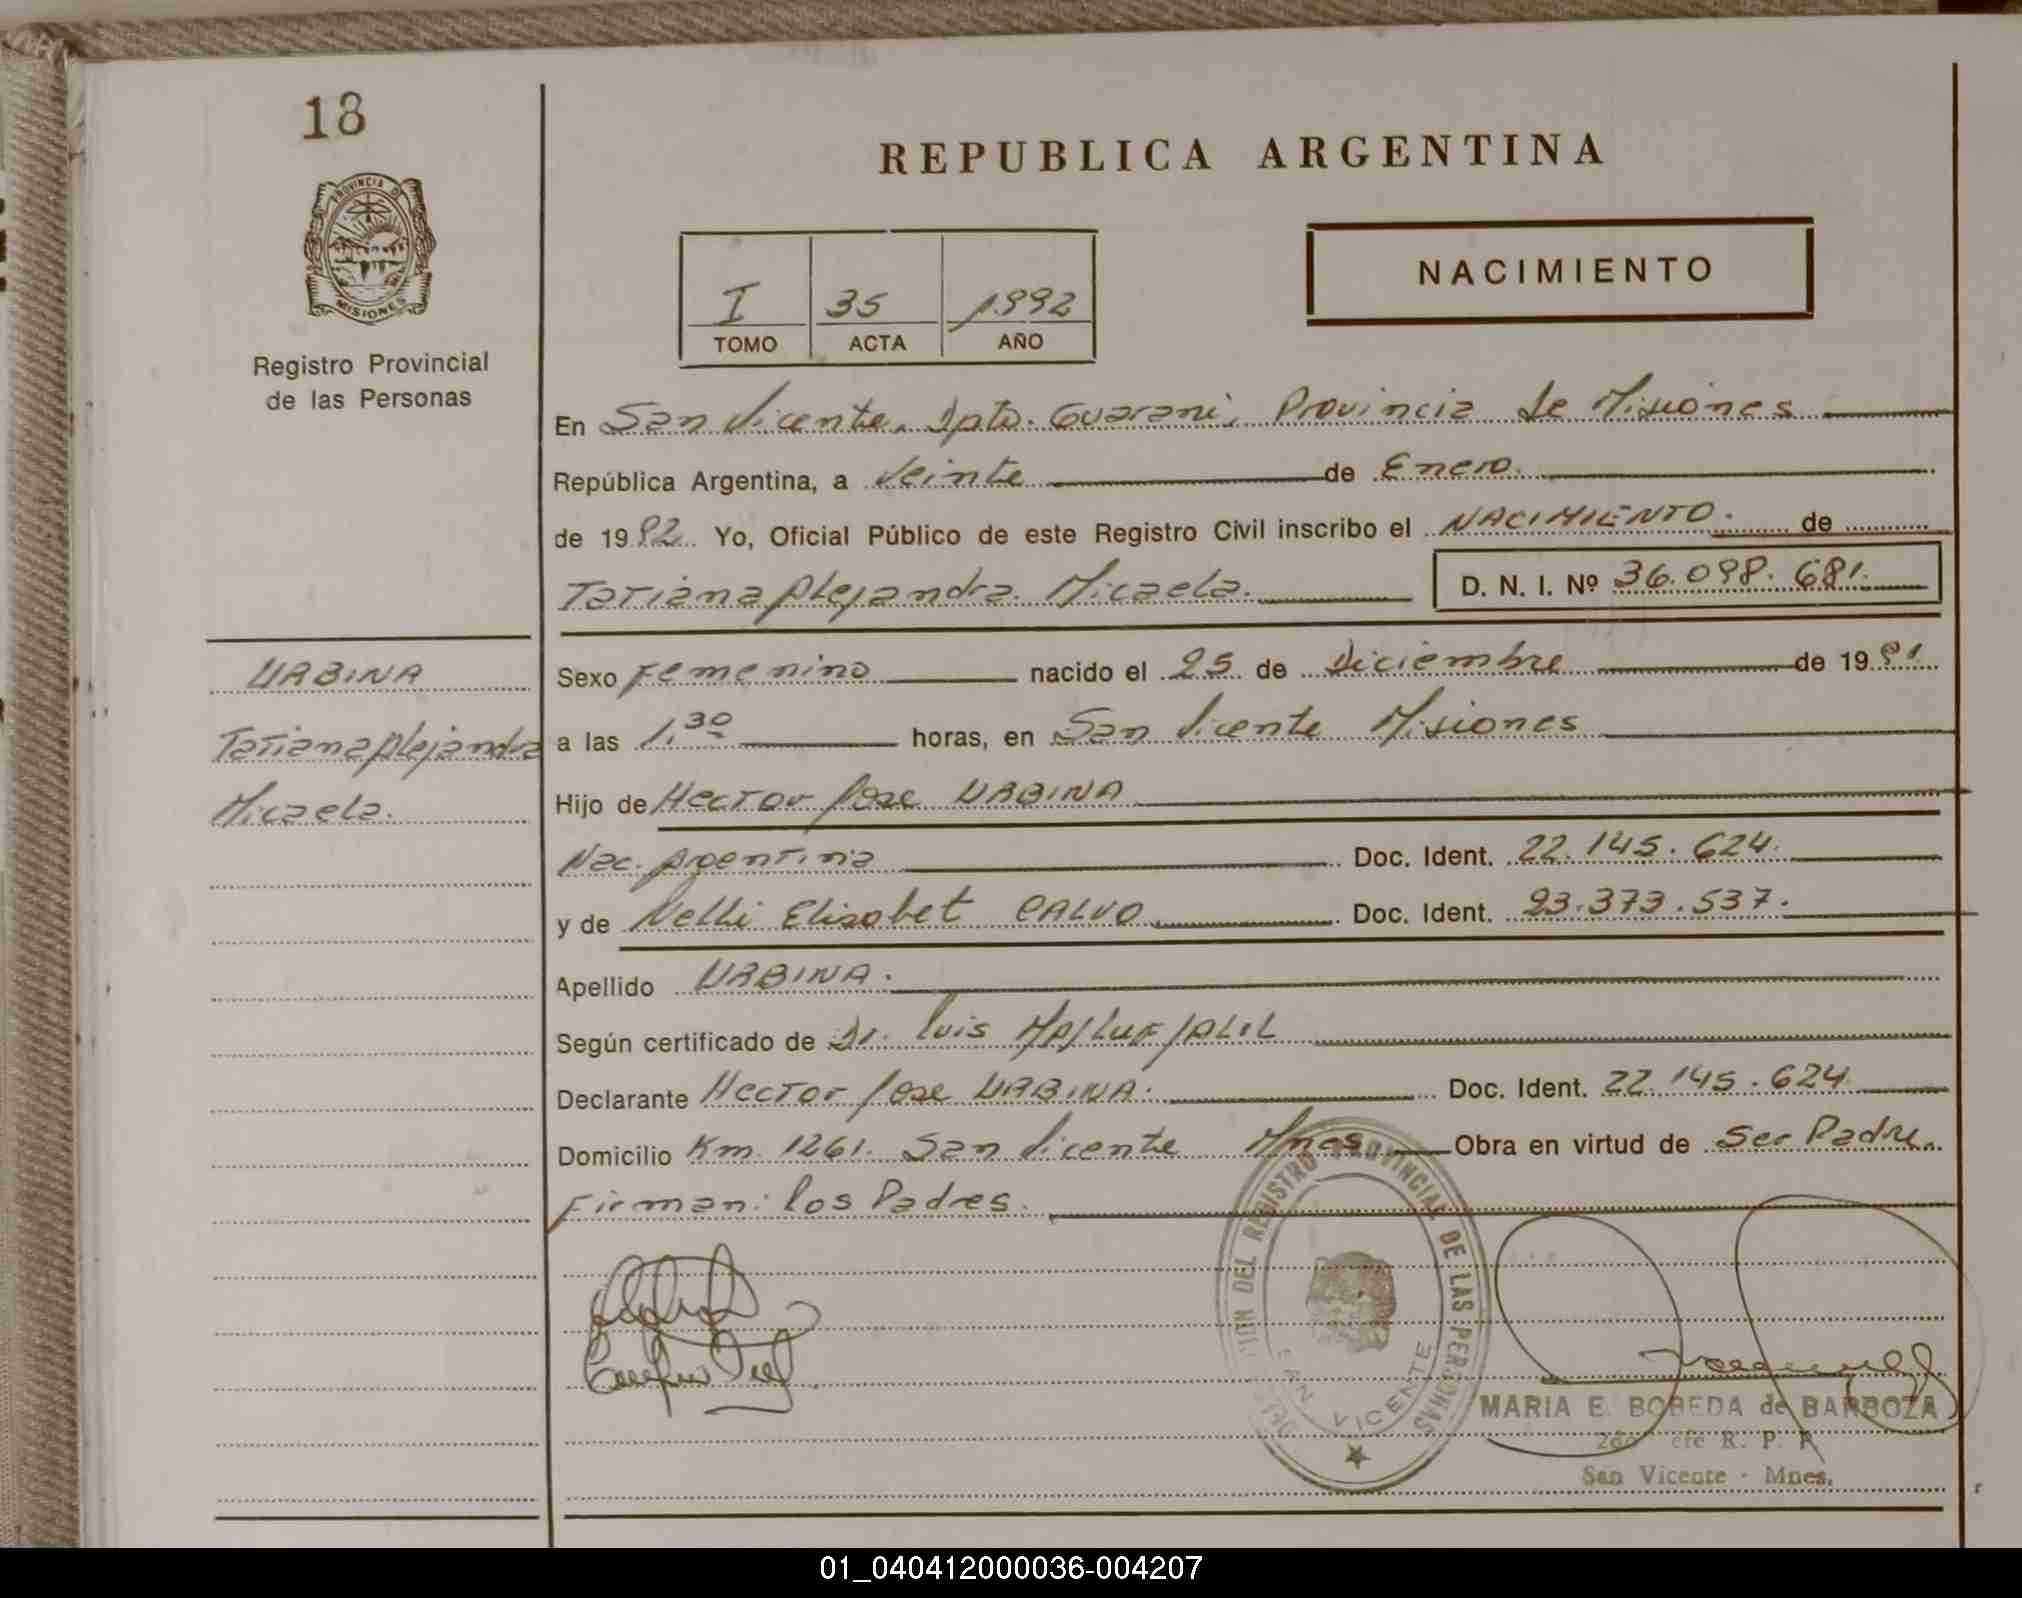 18
REPUBLICA ARGENTINA
PROVINCIA D
MISIONES
Registro Provincial
de las Personas
I 35 1.992
TOMO ACTA AÑO
NACIMIENTO
En San Vicente. Dpto. Guarani, Provincia de Misiones
República Argentina, a Veinte de Enero.
de 1992 Yo, Oficial Público de este Registro Civil inscribo el NACIMIENTO. de
Tatiana Alejandra Micaela. D. N. I. Nº 36.098.681.
URBINA
Tatiana Alejandra
Micaela.
Sexo Femenino nacido el 25 de Diciembre de 1991
a las 1,30 horas, en San Vicente Misiones
Hijo de Hector Jose URBINA
Nac. Argentina Doc. Ident. 22.145.624.
y de Nelli Elisabet CALVO Doc. Ident. 23.373.537.
Apellido URBINA.
Según certificado de Dr. Luis MAJLUF JALIL
Declarante Hector Jose URBINA. Doc. Ident. 22.145.624
Domicilio Km. 1261. San Vicente Mnes Obra en virtud de Ser Padre.
Firman: los Padres.
DEL REGISTRO PROVINCIAL DE LAS PERSONAS
SAN VICENTE
MARIA E. BOBEDA de BARBOZA
2do efe R. P. P.
San Vicente - Mnes.
01_040412000036-004207